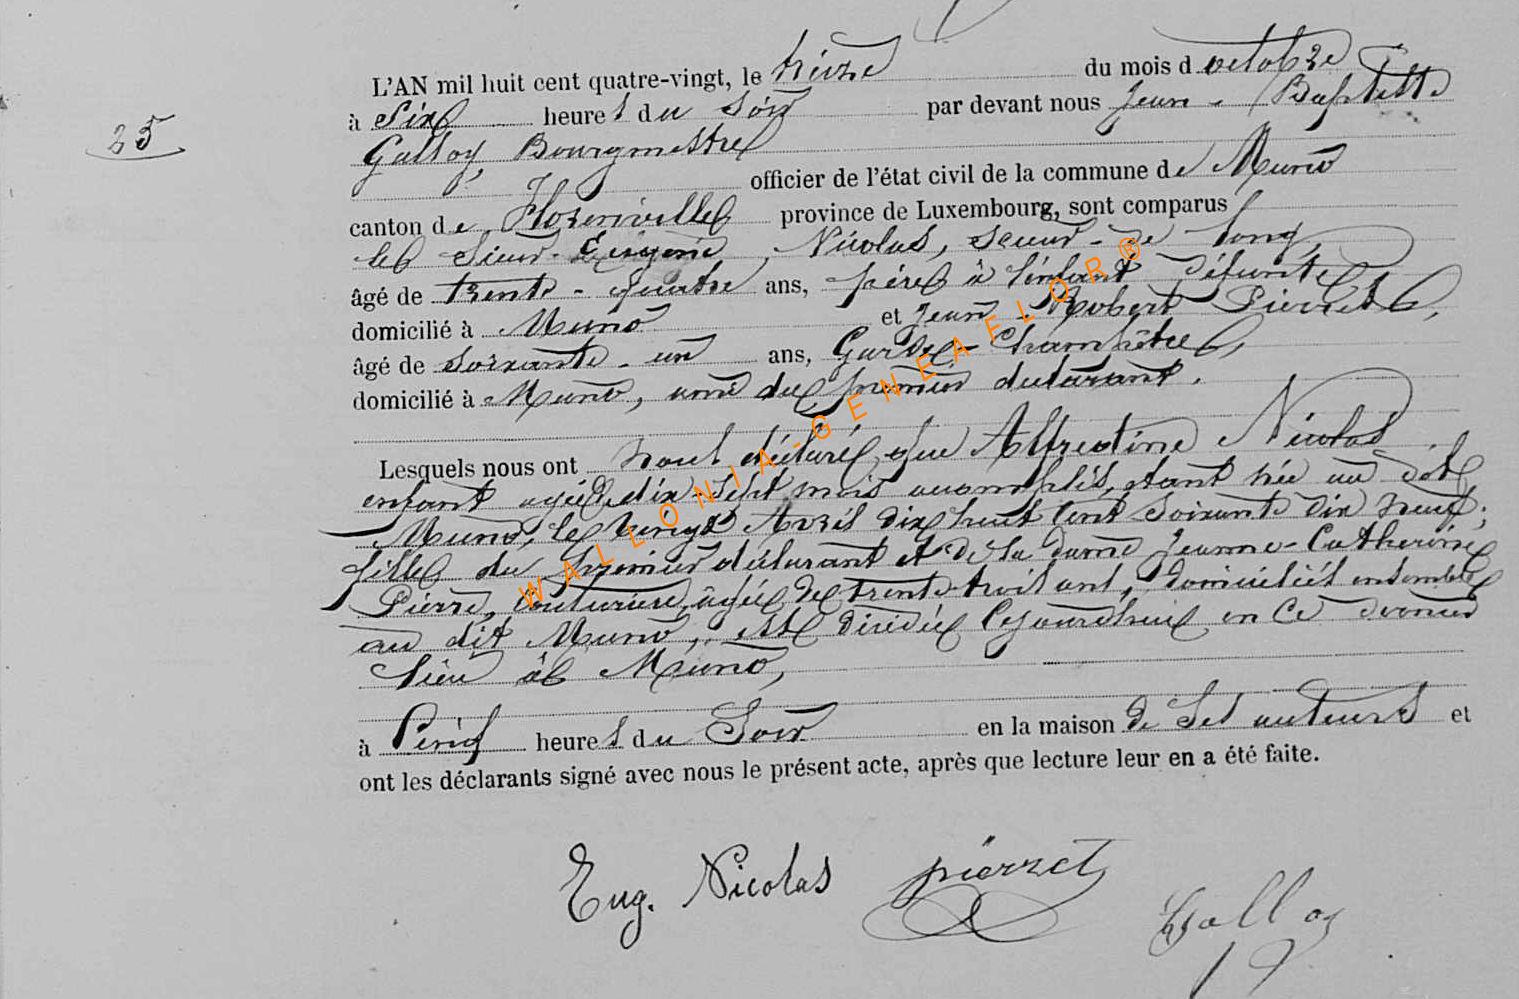 L'AN mil huit cent quatre-vingt, le treize du mois d octobre
25
à Six heures du Soir par devant nous Jean-Baptiste
Galloy, Bourgmestre
officier de l'état civil de la commune de Muno
canton de Florenville province de Luxembourg, sont comparus
le Sieur Eugène Nicolas, Scieur-de long,
âgé de trente-quatre ans, père à l'enfant défunte
domicilié à Muno et Jean-Robert Pierret,
âgé de soixante-un ans, Garde-Champêtre,
domicilié à Muno, ami du premier déclarant.
Lesquels nous ont nous déclaré que Alfredine Nicolas
enfant agée de dix-sept mois accomplis, étant née au dit
Muno, le vingt Avril dix huit cent soixante dix neuf,
fille du premier déclarant et de la dame Jeanne-Catherine
Pierre, couturière, âgée de trente-trois ans, domiciliés ensemble
au dit Muno, est décédée cejourd'hui en ce dernier
lieu à Muno,
à Cinq heures du Soir en la maison de Ses auteurs et
ont les déclarants signé avec nous le présent acte, après que lecture leur en a été faite.
Eug. Nicolas pierret Galloy
WALLONIA-GENEAFLOR®